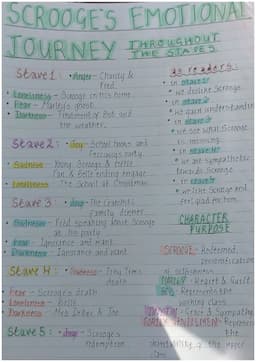 SCROOGE'S EMOTIONAL
JOURNEY THROUGHOUT
THE STAVES
Stave 1: • Anger - Charity &
Fred.
• Loneliness - Scrooge in his home
• Fear - Marley's ghost
• Darkness - Treatment of Bob and
the weather.
Stave 2: • Joy - School home and
Fezziwig's party.
• Sadness - Young Scrooge & sister
Fan & Belle ending engage
• Loneliness - The School at Christmas
Stave 3: • Joy - The Cratchits
family dinner
• Sadness - Fred speaking about Scrooge
at his party
• Fear - Ignorance and want
• Darkness - Ignorance and want
Stave 4: • Sadness - Tiny Tim's
death
• Fear - Scrooge's death
• Loneliness - Belle
• Darkness - Mrs Dilber & Joe
Stave 5: • Joy - Scrooge's
redemption
as readers:
• in stave 1
we dislike Scrooge.
• in stave 2
we gain understanding
• in stave 3
we see what Scrooge
is missing.
• in stave 4
we are sympathetic
towards Scrooge.
• in stave 5
we like Scrooge and
feel glad for him.
CHARACTER
PURPOSE
SCROOGE - Redeemed,
personification
of selfishness
MARLEY - Regret & Guilt
BOB - Represents the
working class.
- Greed & Sympathy
GENTLEMEN - Represent
the
of the upper
class